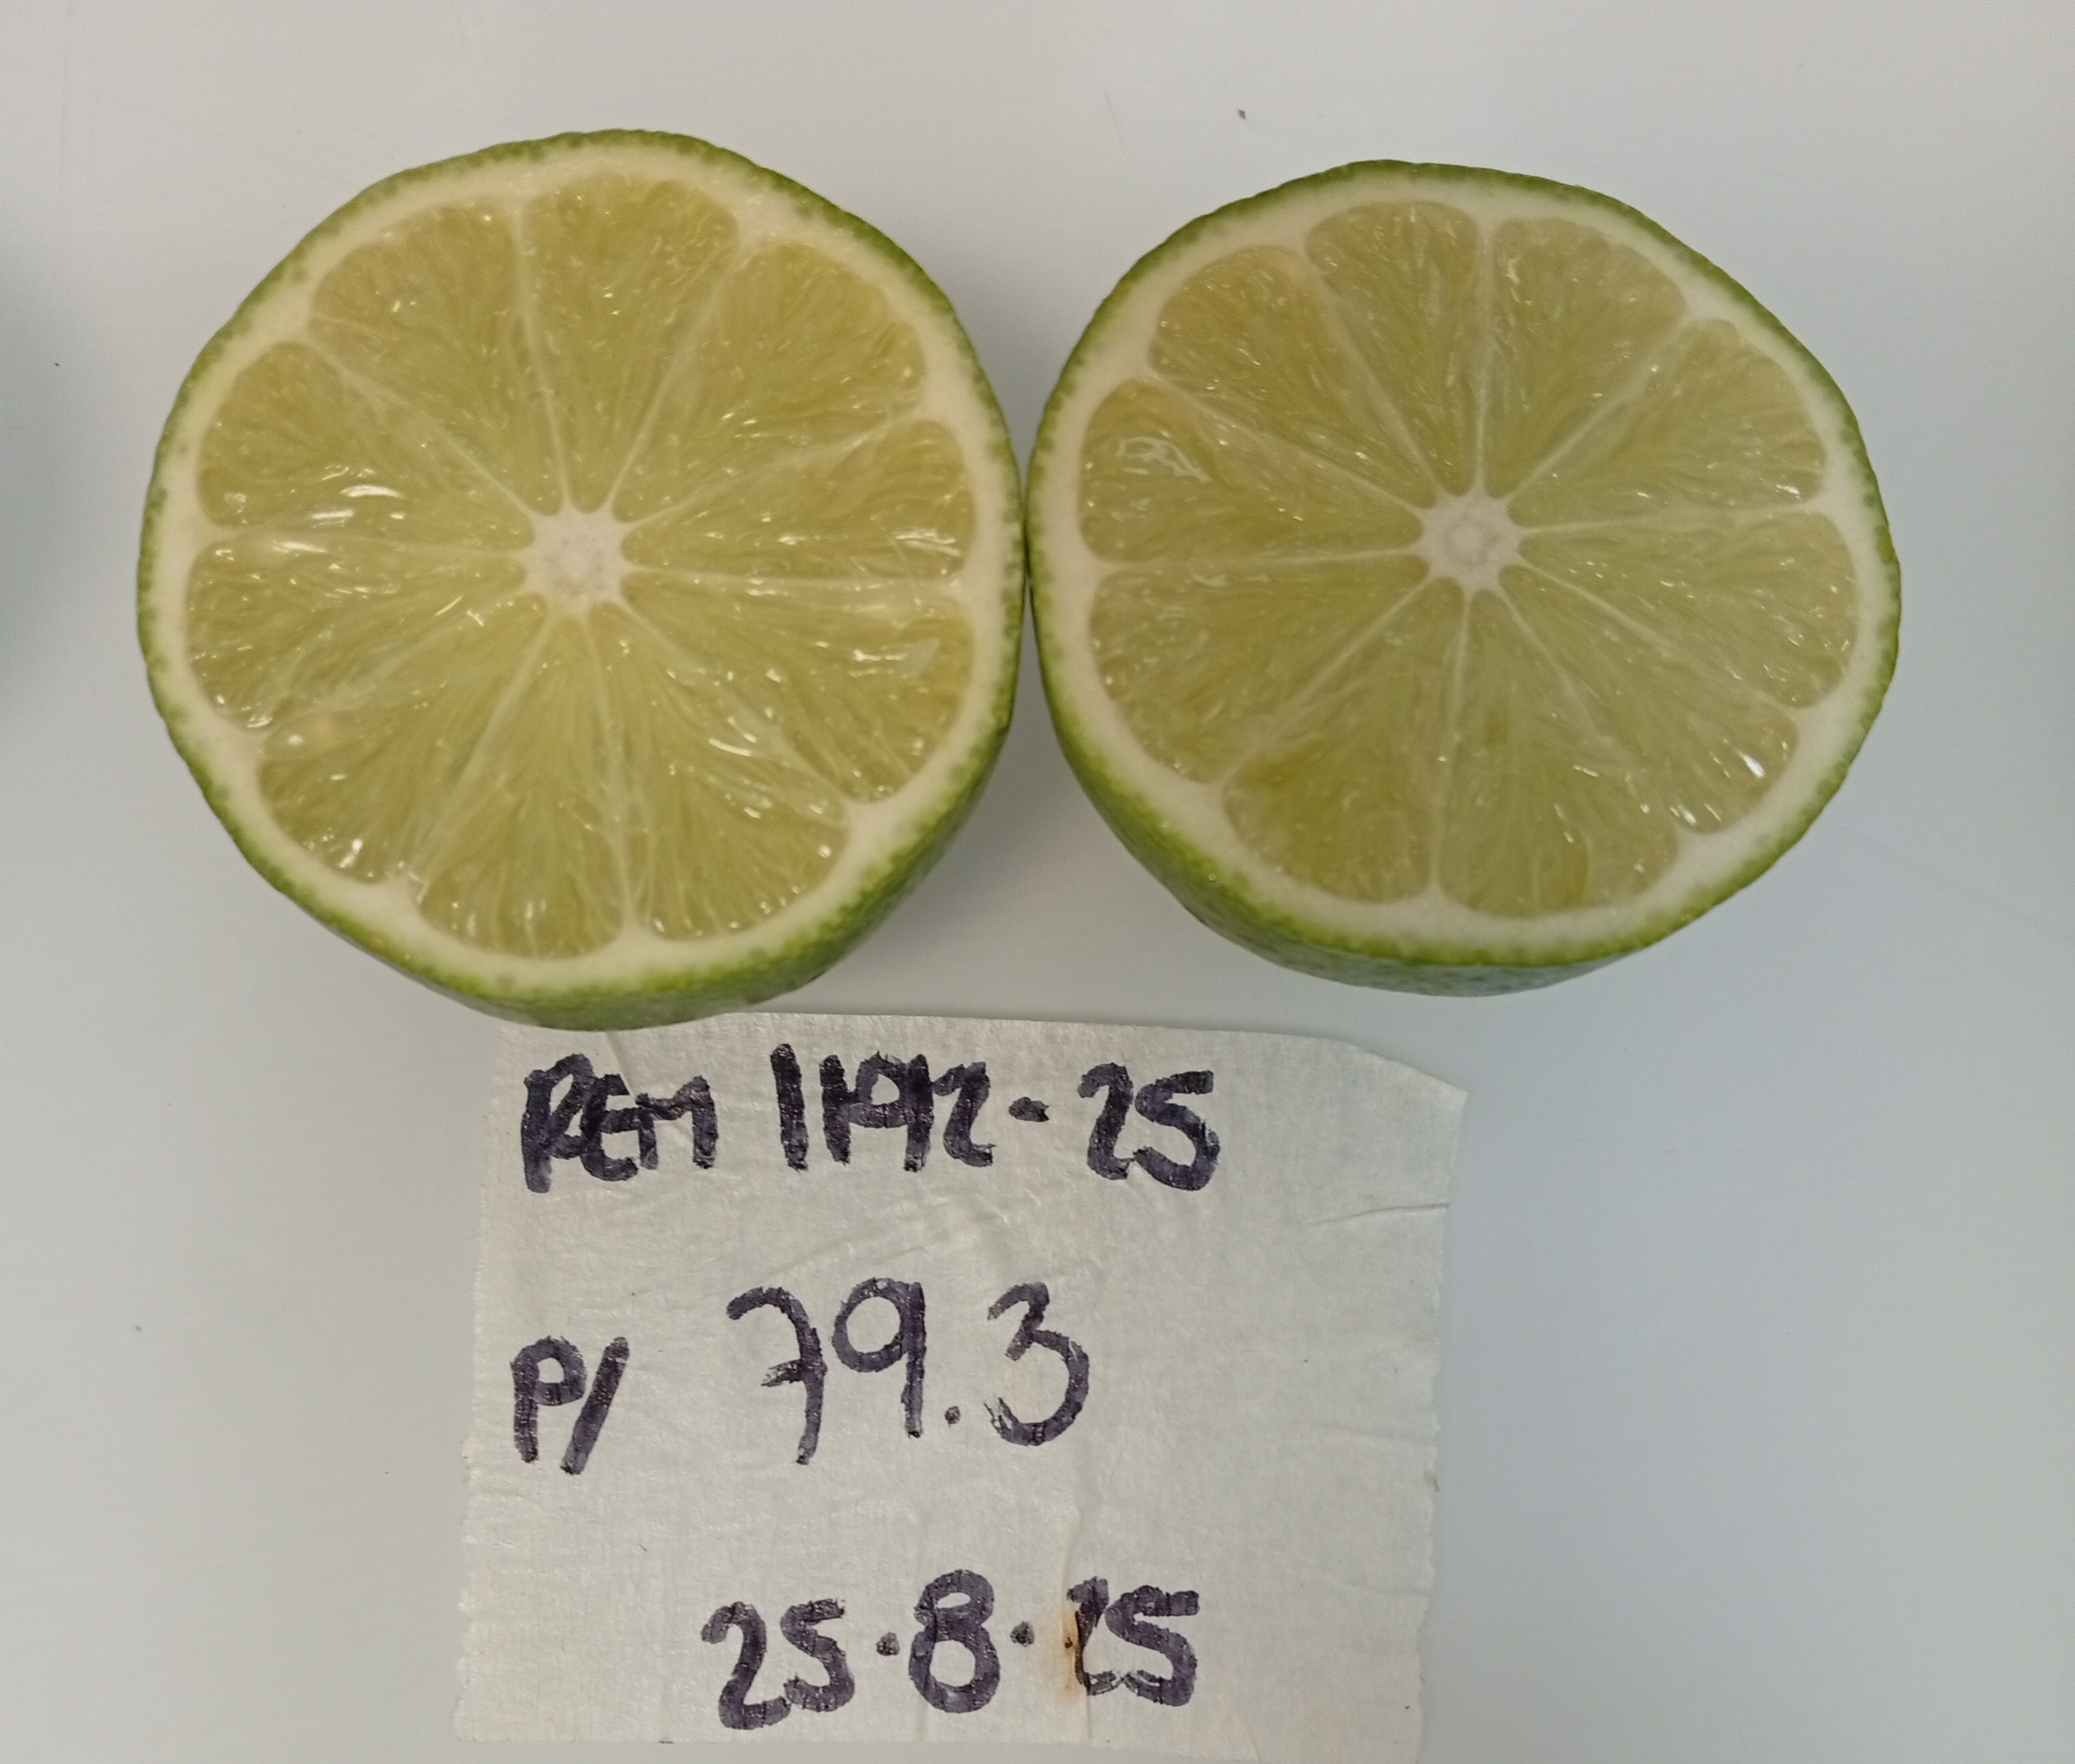 REM 1192-25
P/ 79.3
25.8.25